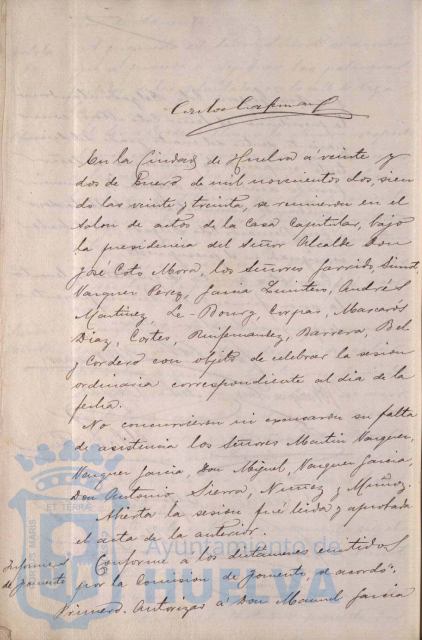 Carlos
En la Ciudad de Huelva á veinte y
dos de Enero de mil novecientos dos, sien
do las veinte y treinta, se reunieron en el
Salon de actos de la Casa Capitular, bajo
la presidencia del Señor Alcalde Don
José Coto Mora, los Señores Garrido,
Vazquez Perez, Garcia Quintero, Andrés
Martinez, Le-Bourg, Corpas, Mascarós
Diaz, Cortés, Ruifernandez, Barrera, Bel
y Cordero con objeto de celebrar la sesion
ordinaria correspondiente al dia de la
fecha.
No concurrieron ni excusaron su falta
de asistencia los Señores Martin Vazquez,
Vazquez Garcia, Don Miguel, Vazquez Garcia,
Don Antonio, Sierra, Nuñez y Muñoz.
Abierta la sesion fué leida y aprobada
el acta de la anterior.
Informes
de fomento
Conforme á los dictámenes emitidos
por la Comision de fomento, se acordó:
Primero. Autorizar á Don Manuel Garcia
ET TERRÆ
US MARIS
Ayuntamiento de
HUELVA